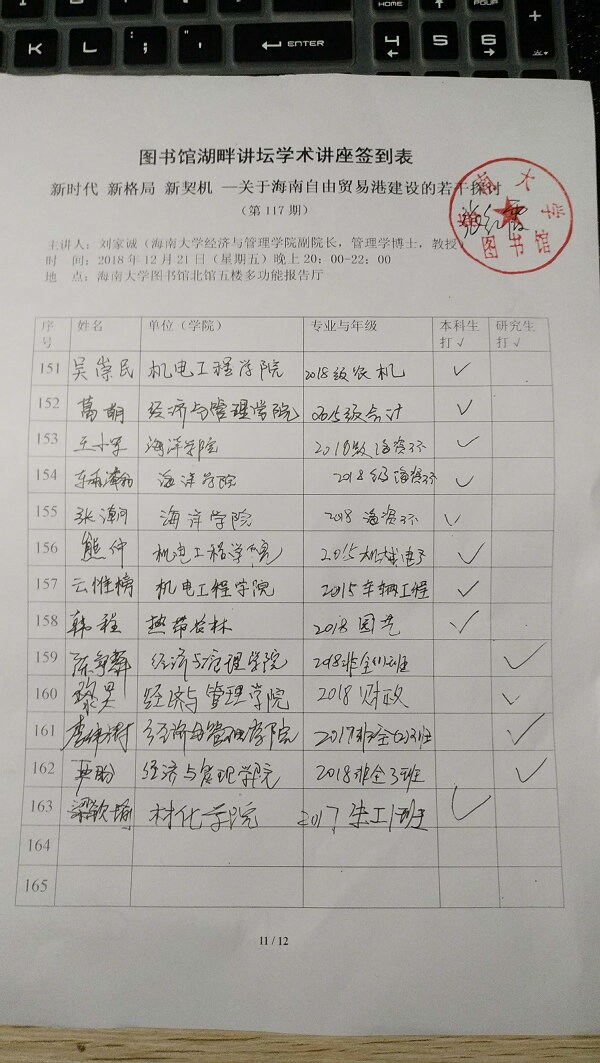 K L : ; " ' ENTER 4 5 6
图书馆湖畔讲坛学术讲座签到表
新时代 新格局 新契机 —关于海南自由贸易港建设的若干探讨
（第 117 期）
海南大学
图书馆
主讲人：刘家诚（海南大学经济与管理学院副院长，管理学博士，教授）
时 间：2018 年 12 月 21 日（星期五）晚上 20：00-22：00
地 点：海南大学图书馆北馆五楼多功能报告厅
序号 姓名 单位（学院） 专业与年级 本科生打√ 研究生打√
151 吴崇民 机电工程学院 2018级农机 ✓
152 葛朝 经济与管理学院 2015级会计 ✓
153 王小宇 海洋学院 2018级海资环 ✓
154 海洋学院 2018级海资环 ✓
155 张 海洋学院 2018 海资环 ✓
156 熊仲 机电工程学院 2015机械电子 ✓
157 云惟榜 机电工程学院 2015车辆工程 ✓
158 韩程 热带农林 2018园艺 ✓
159 陈 经济与管理学院 2018非全 班 ✓
160 黎昊 经济与管理学院 2018财政 ✓
161 李 经济与管理学院 2017非全 班 ✓
162 盼 经济与管理学院 2018非全3班 ✓
163 梁歆瑜 材化学院 2017 工1班 ✓
164
165
11 / 12